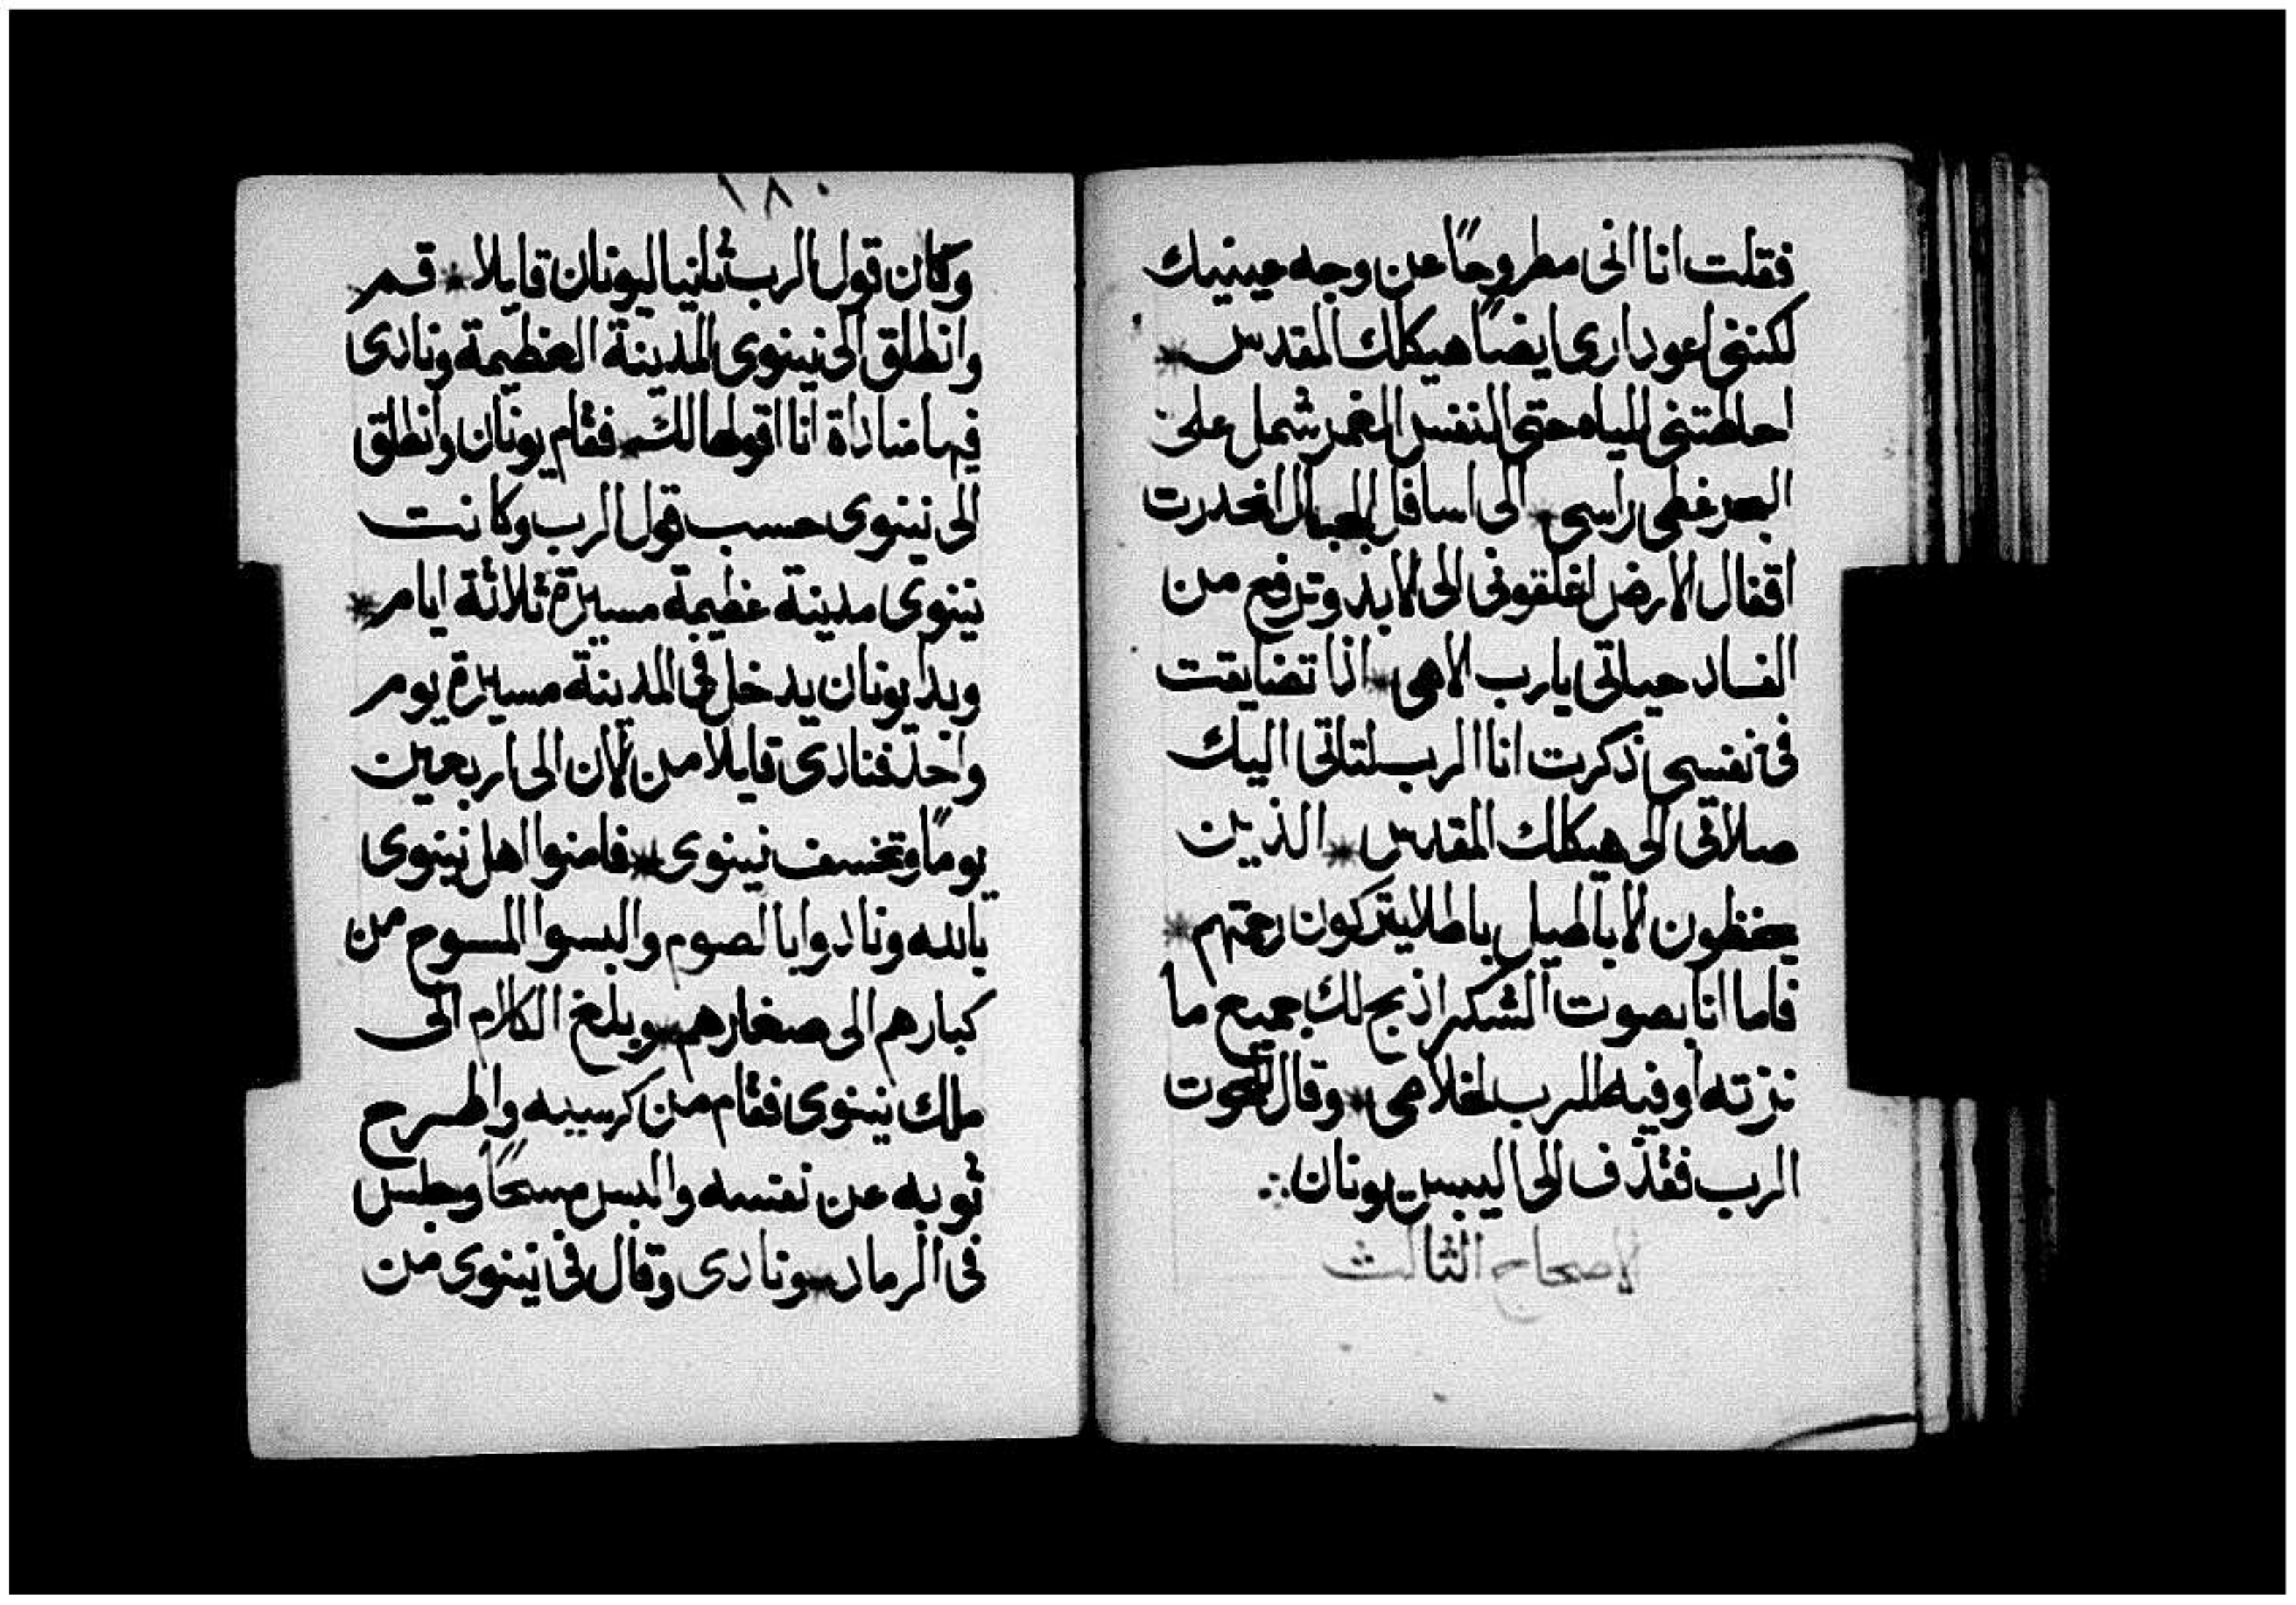 فقلت انا انى مطروحاً عن وجه عينيك
لكننى اعود ارى ايضاً هيكلك المقدس *
احاطتنى المياه حتى النفس الغمر شمل على
البحر غطى راسى * الى اسافل الجبال انحدرت
اقفال الارض اغلقونى الى الابد وترفع من
الفساد حياتى يا رب الاهى * اذا تضايقت
فى نفسى ذكرت انا الرب لتاتى اليك
صلاتى الى هيكلك المقدس * الذين
يحفظون الاباطيل باطلا يتركون رحمتهم *
فاما انا بصوت الشكر اذبح لك جميع ما
نزرته اوفيه للرب لخلاصى * وقال للحوت
الرب فقذف الى اليبس يونان ∴
الاصحاح الثالث
١٨٠
وكان قول الرب ثانيا ليونان قايلا * قم
وانطلق الى نينوى المدينة العظيمة ونادى
فيها مناداة انا اقولها لك * فقام يونان وانطلق
الى نينوى حسب قول الرب وكانت
نينوى مدينة عظيمة مسيرة ثلاثة ايام *
وبدا يونان يدخل فى المدينة مسيرة يوم
واحد فنادى قايلا من الان الى اربعين
يوماً وتخسف نينوى * فامنوا اهل نينوى
بالله ونادوا بالصوم والبسوا المسوح من
كبارهم الى صغارهم * وبلغ الكلام الى
ملك نينوى فقام من كرسيه واطرح
ثوبه عن نفسه والبس مسحاً وجلس
فى الرماد * ونادى وقال فى نينوى من